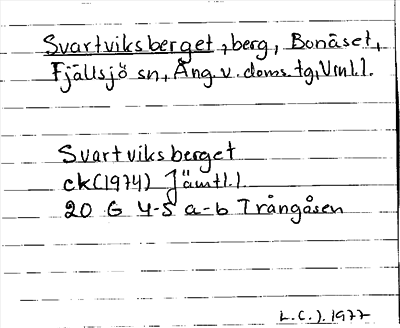 Svartviksberget, berg, Bonäset,
Fjällsjö sn, Ång. v. doms. tg, Vnl. l.
Svartviksberget
ck (1974) Jämtl. l
20 G 4-5 a-b Trångåsen
L.C.J. 1977